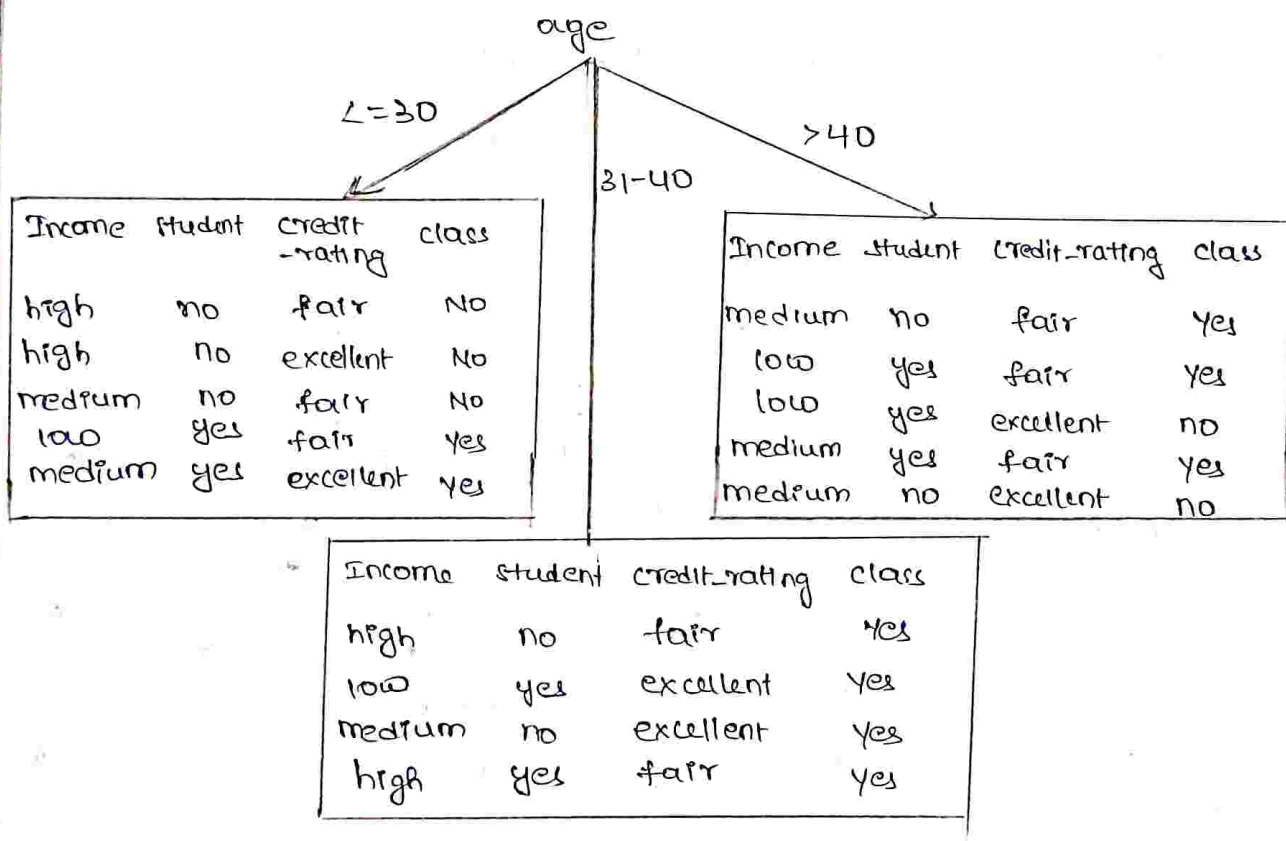 age
<=30
>40
31-40
Income student credit-rating class
high no fair No
high no excellent No
medium no fair No
low yes fair yes
medium yes excellent yes
Income student credit_rating class
medium no fair yes
low yes fair yes
low yes excellent no
medium yes fair yes
medium no excellent no
Income student credit_rating class
high no fair yes
low yes excellent yes
medium no excellent yes
high yes fair yes